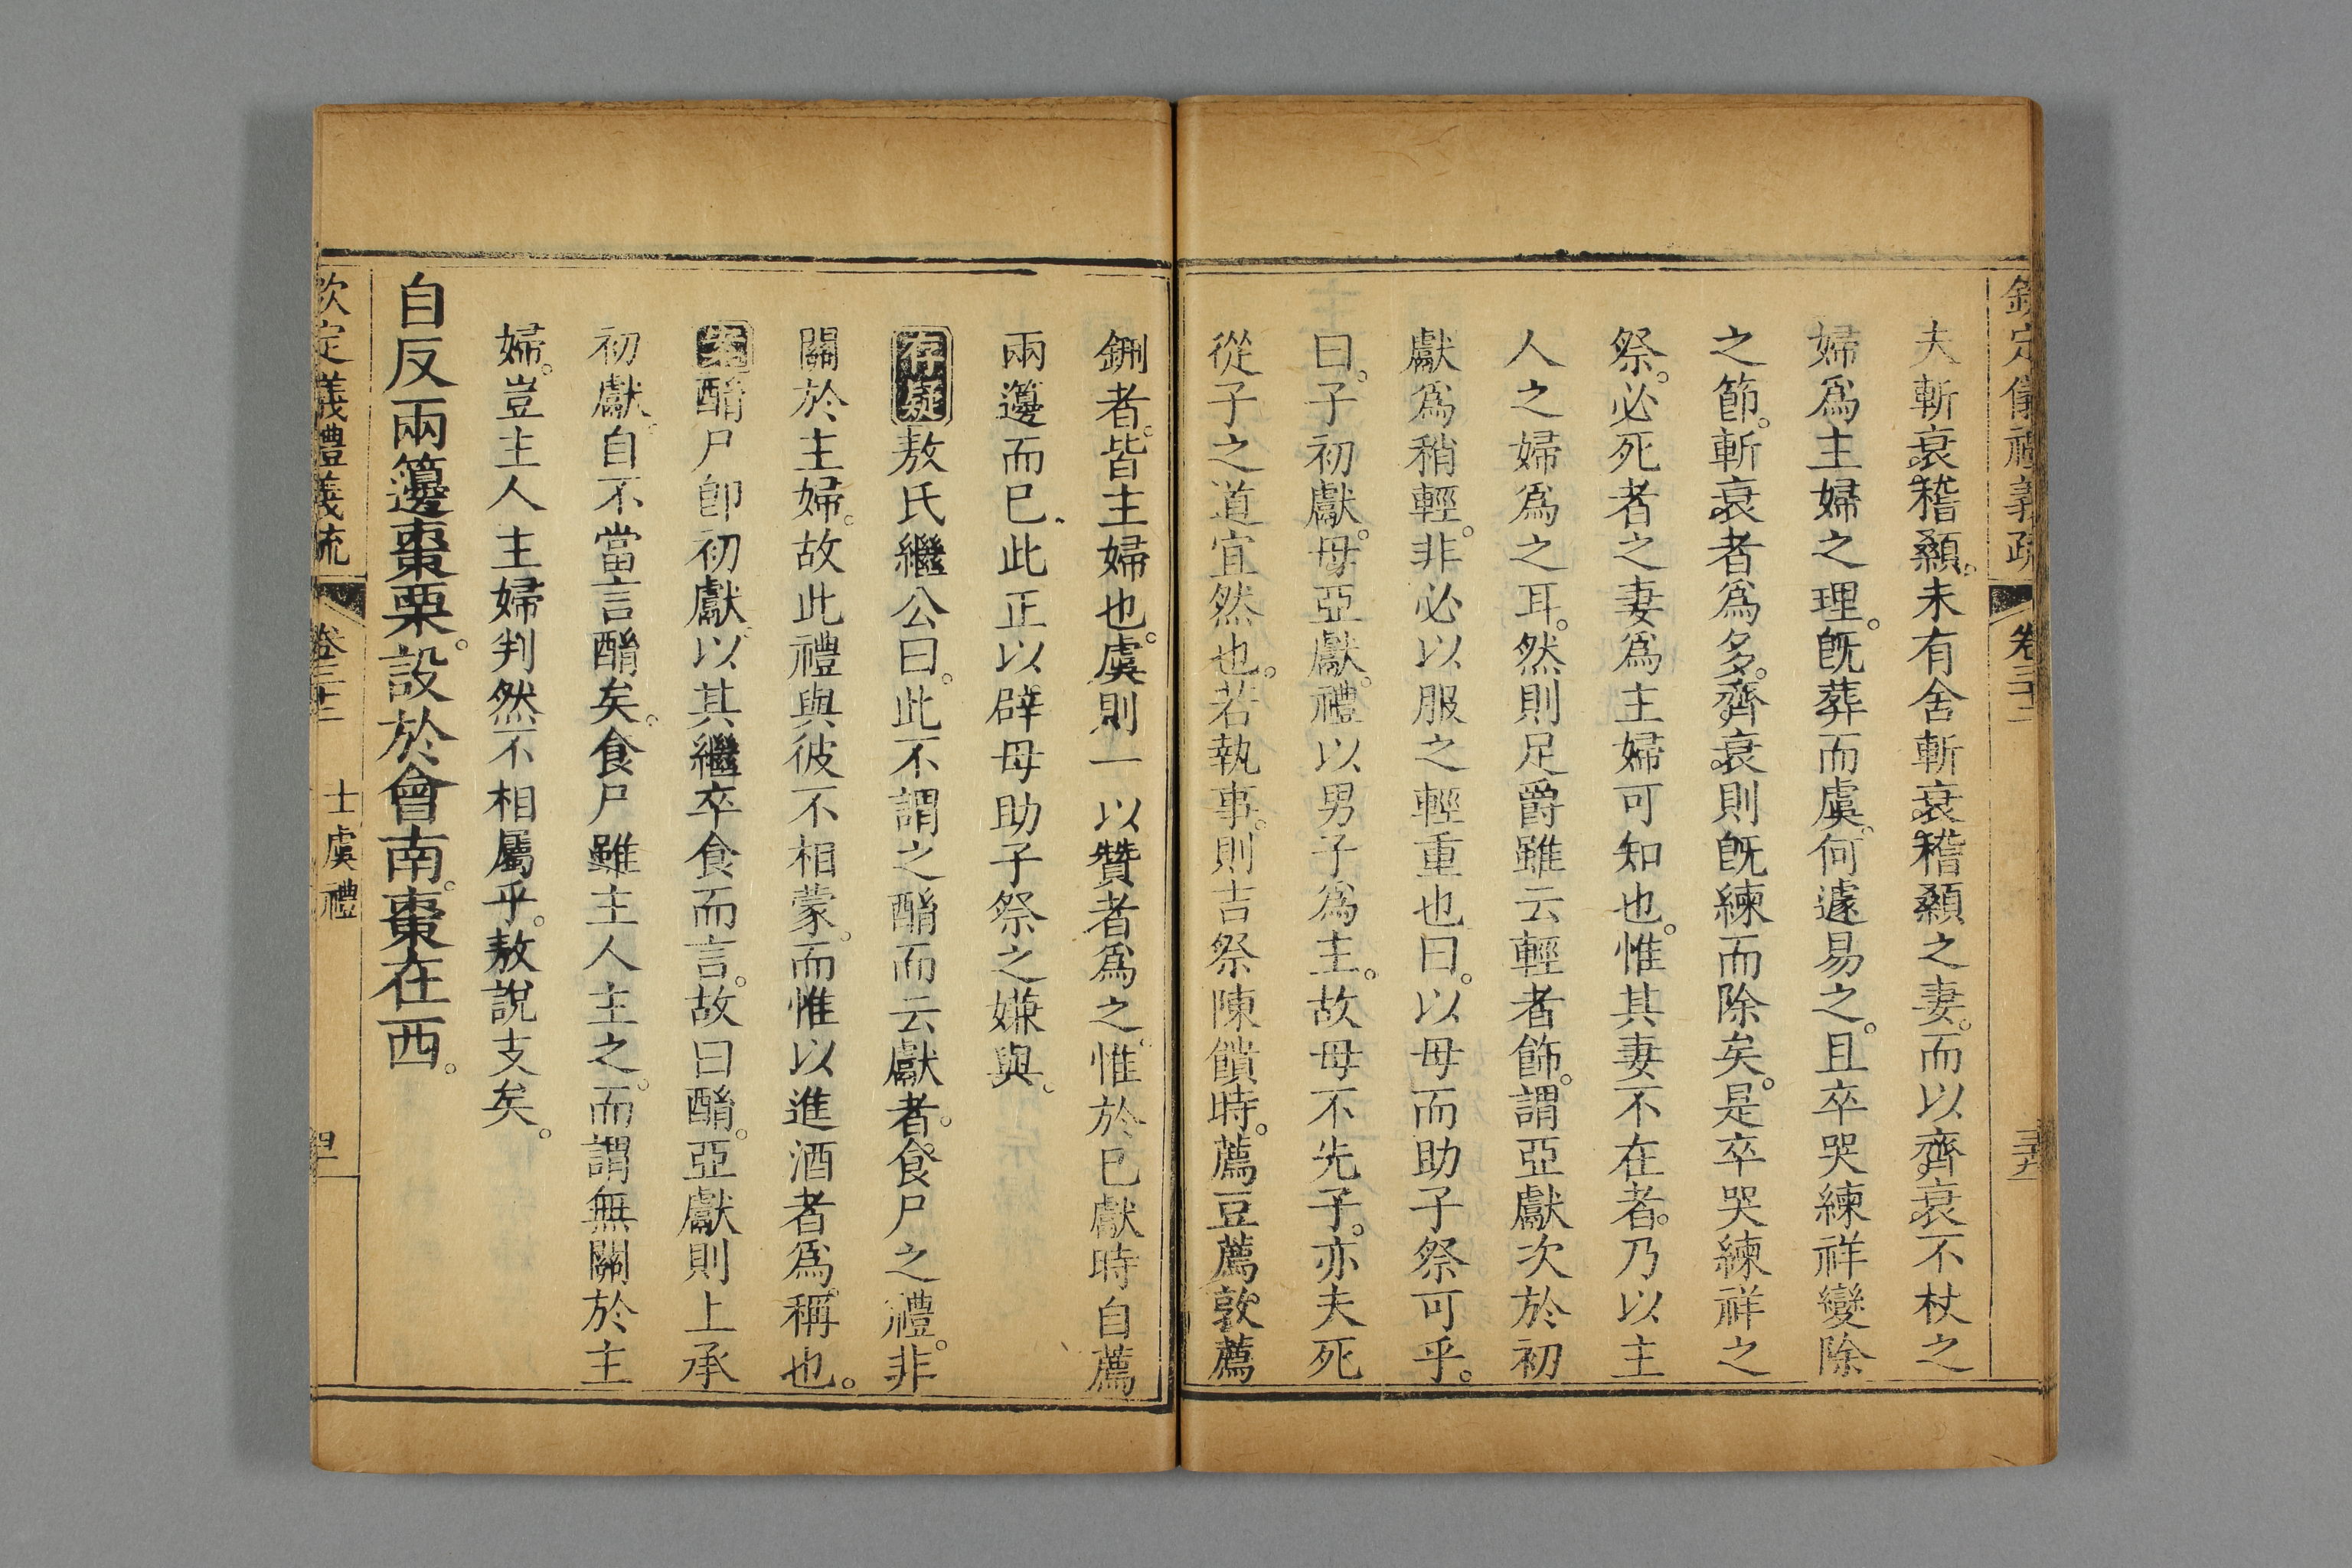 欽定儀禮義疏 卷三十二 三十九
夫斬衰稽顙。未有舍斬衰稽顙之妻。而以齊衰不杖之
婦爲主婦之理。旣葬而虞。何遽易之。且卒哭練祥變除
之節。斬衰者爲多。齊衰則旣練而除矣。是卒哭練祥之
祭。必死者之妻爲主婦可知也。惟其妻不在者。乃以主
人之婦爲之耳。然則足爵雖云輕者飾。謂亞獻次於初
獻爲稍輕。非必以服之輕重也。曰。以母而助子祭可乎。
曰。子初獻。母亞獻。禮以男子爲主。故母不先子。亦夫死
從子之道宜然也。若執事。則吉祭陳饋時。薦豆薦敦薦
鉶者。皆主婦也。虞則一以贊者爲之。惟於已獻時自薦
兩籩而已。此正以辟母助子祭之嫌與。
存疑敖氏繼公曰。此不謂之酳而云獻者。食尸之禮。非
關於主婦。故此禮與彼不相蒙。而惟以進酒者爲稱也。
案酳尸卽初獻。以其繼卒食而言。故曰酳。亞獻則上承
初獻。自不當言酳矣。食尸雖主人主之。而謂無關於主
婦。豈主人主婦判然不相屬乎。敖說支矣。
自反兩籩棗栗。設於會南。棗在西。
欽定儀禮義疏 卷三十二 士虞禮 四十